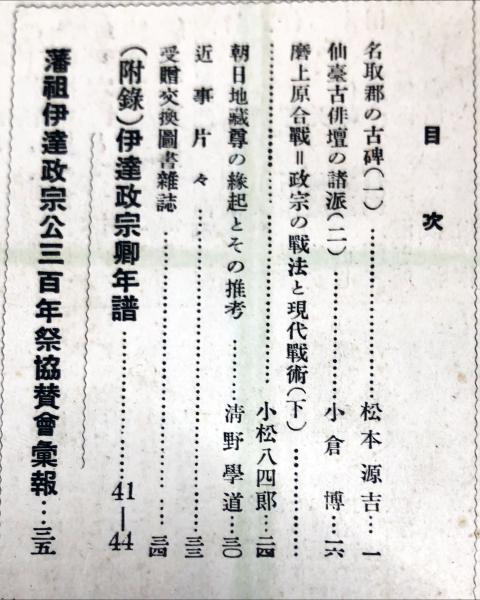 目次
名取郡の古碑(一)……………………松本源吉…一
仙臺古俳壇の諸派(二)……………………小倉博…一六
磨上原合戰=政宗の戰法と現代戰術(下)…………
……………………小松八四郎…二四
朝日地藏尊の緣起とその推考………淸野學道…三〇
近事片々……………………三三
受贈交換圖書雜誌……………………三四
(附錄)伊達政宗卿年譜……………………41—44
藩祖伊達政宗公三百年祭協賛會彙報…三五